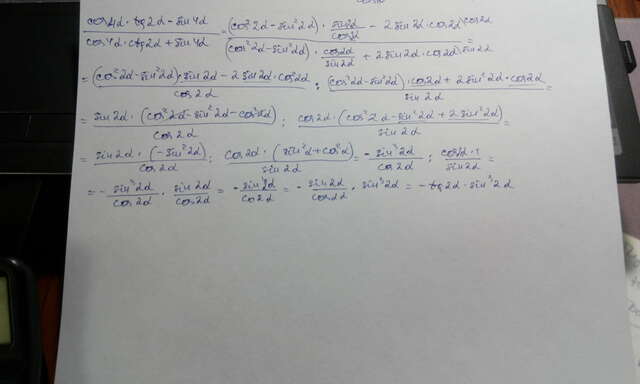 (cos4α · tg2α − sin4α)/(cos4α · ctg2α + sin4α) = ((cos²2α − sin²2α) · sin2α/cos2α − 2 sin2α · cos2α)/((cos²2α − sin²2α) · cos2α/sin2α + 2 sin2α · cos2α) =
= ((cos²2α − sin²2α) · sin2α − 2 sin2α · cos²2α)/cos2α : ((cos²2α − sin²2α) · cos2α + 2 sin²2α · cos2α)/sin2α =
= sin2α · (cos²2α − sin²2α − cos²2α)/cos2α : cos2α · (cos²2α − sin²2α + 2 sin²2α)/sin2α =
= sin2α · (−sin²2α)/cos2α : cos2α · (sin²α + cos²α)/sin2α = −sin³2α/cos2α : cos2α · 1/sin2α =
= −sin³2α/cos2α · sin2α/cos2α = −sin⁴2α/cos2α = −sin2α/cos2α · sin³2α = −tg2α · sin³2α